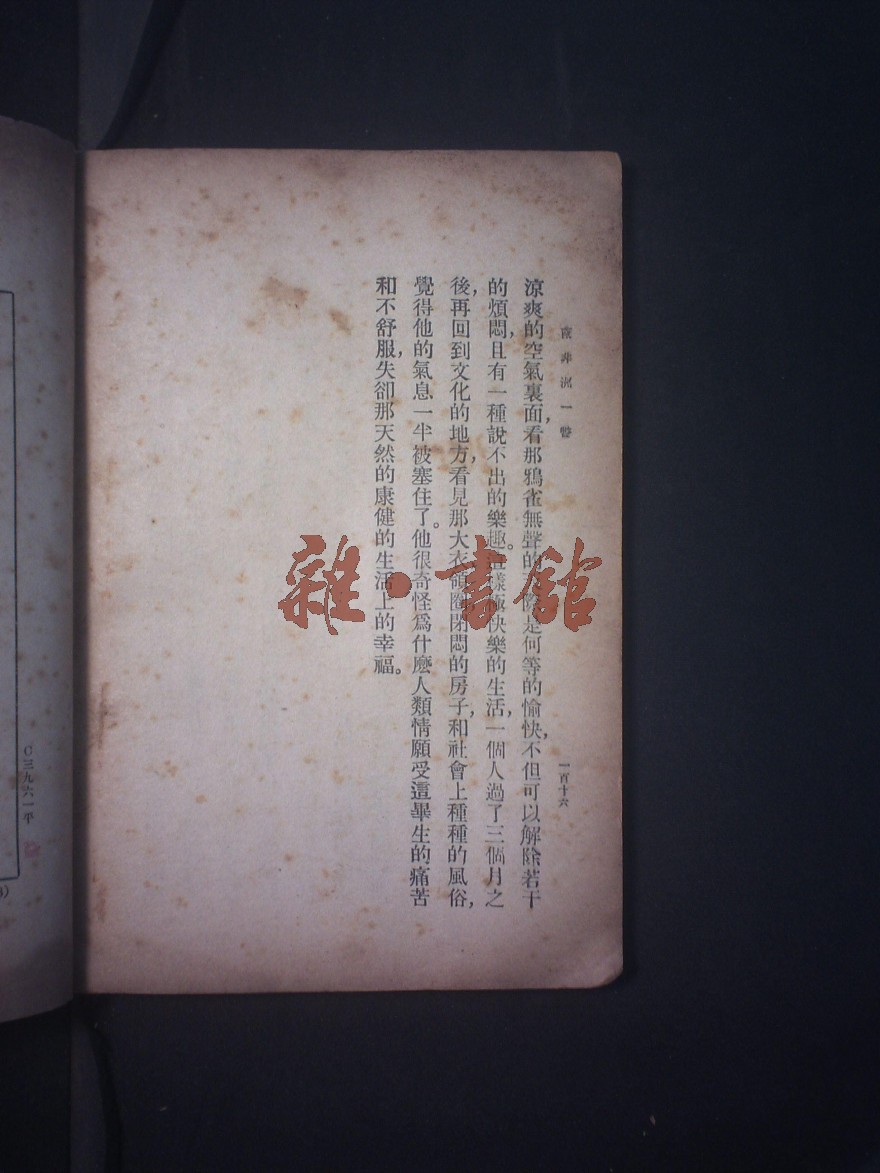 南非洲一瞥
一百十六
涼爽的空氣裏面,看那鴉雀無聲的是何等的愉快,不但可以解除若干
的煩悶,且有一種說不出的樂趣。這樣極快樂的生活,一個人過了三個月之
後,再回到文化的地方,看見那大衣領閉悶的房子,和社會上種種的風俗,
覺得他的氣息一半被塞住了。他很奇怪為什麼人類情願受這畢生的痛苦
和不舒服,失卻那天然的康健的生活上的幸福。
雜·書館
C三九六一平